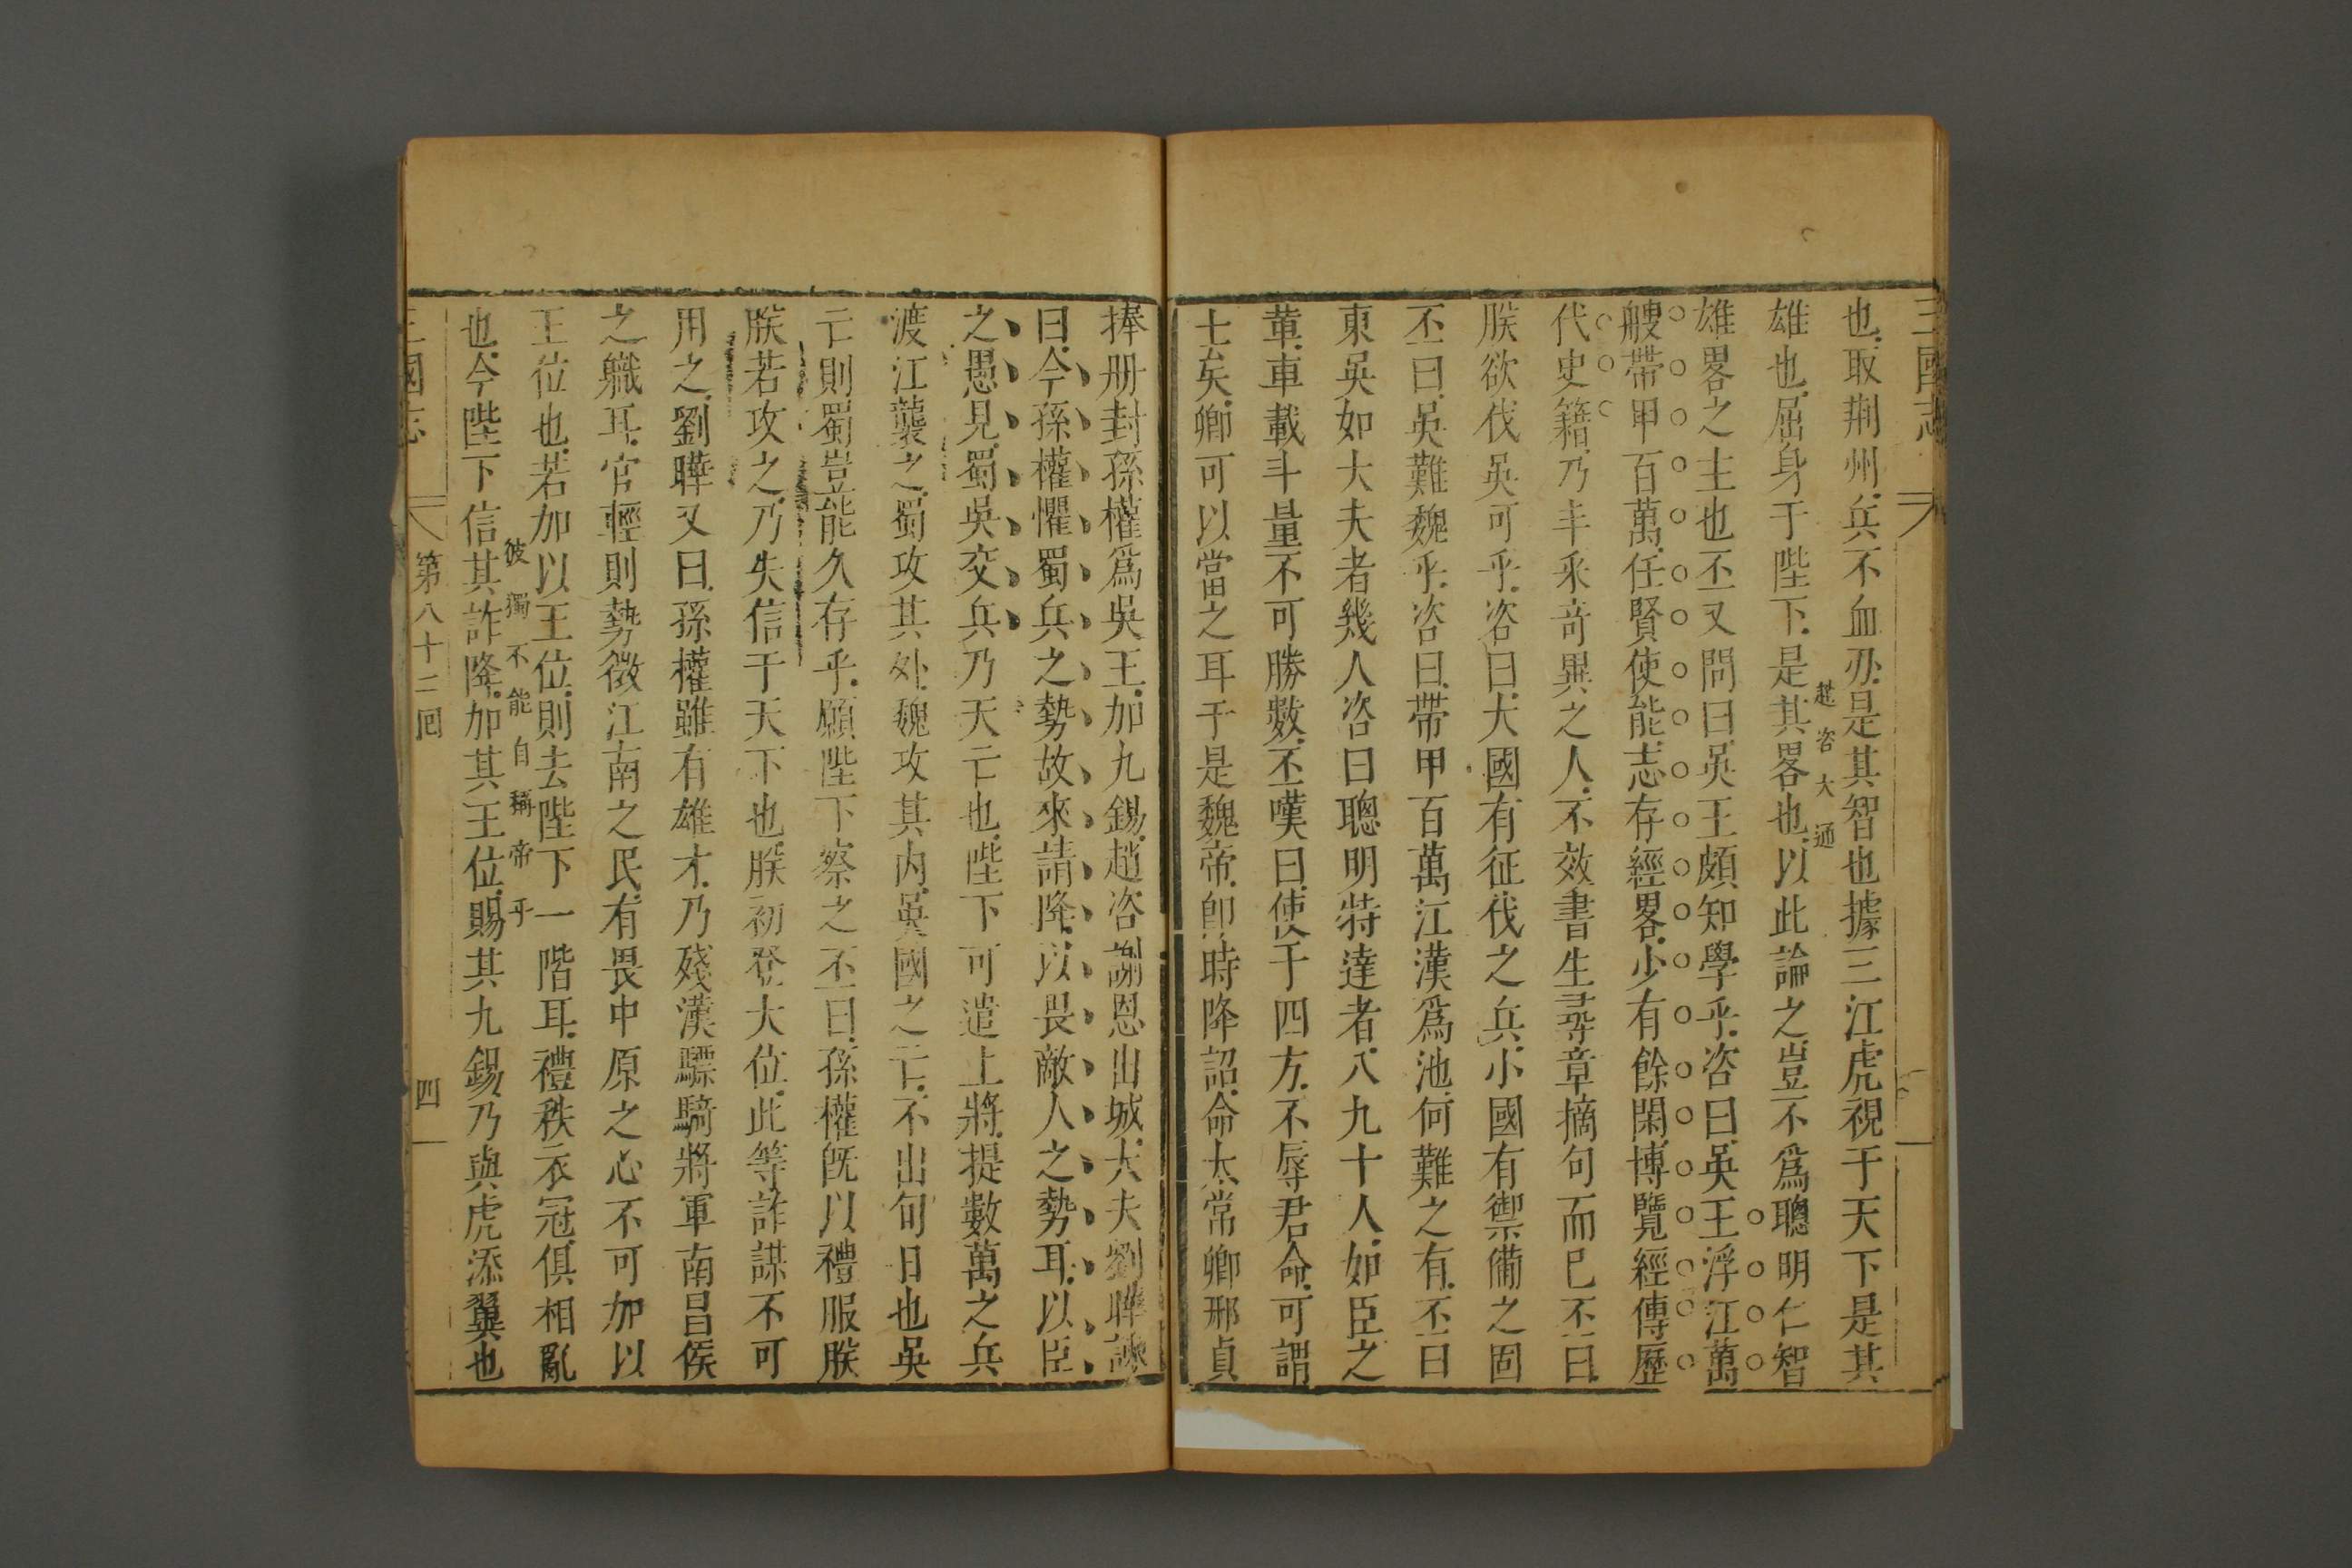 三國志
也取荆州兵不血刃是其智也據三江虎視于天下是其
雄也屈身于陛下是其畧也以此論之豈不爲聰明仁智
趙咨大通
雄畧之主也丕又問曰吳王頗知學乎咨曰吳王浮江萬
艘帶甲百萬任賢使能志存經畧少有餘閑博覽經傳歷
代史籍乃丰采奇異之人不效書生尋章摘句而已丕曰
朕欲伐吳可乎咨曰大國有征伐之兵小國有禦備之固
丕曰吳難魏乎咨曰帶甲百萬江漢爲池何難之有丕曰
東吳如大夫者幾人咨曰聰明特達者八九十人如臣之
軰車載斗量不可勝數丕嘆曰使于四方不辱君命可謂
士矣卿可以當之耳于是魏帝卽時降詔命太常卿邢貞
捧册封孫權爲吳王加九錫趙咨謝恩出城大夫劉曄諫
曰今孫權懼蜀兵之勢故來請降以畏敵人之勢耳以臣
之愚見蜀吳交兵乃天亡也陛下可遣上將提數萬之兵
渡江襲之蜀攻其外魏攻其内吳國之亡不出旬日也吳
亡則蜀豈能久存乎願陛下察之丕曰孫權旣以禮服朕
朕若攻之乃失信于天下也朕初登大位此等詐謀不可
用之劉曄又曰孫權雖有雄才乃殘漢驃騎將軍南昌侯
之軄耳官輕則勢微江南之民有畏中原之心不可加以
王位也若加以王位則去陛下一階耳禮秩衣冠俱相亂
彼獨不能自稱帝乎
也今陛下信其詐降加其王位賜其九錫乃與虎添翼也
三國志 第八十二囘 四